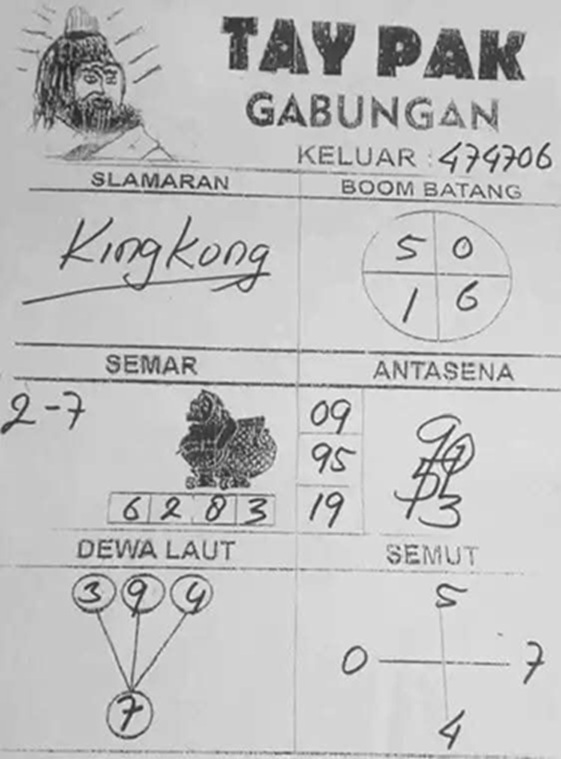 TAY PAK
GABUNGAN
KELUAR : 474706
SLAMARAN
BOOM BATANG
Kingkong
5 0
1 6
SEMAR
ANTASENA
2-7
09
95
19
6 2 8 3
DEWA LAUT
SEMUT
3 9 4
7
5
0 7
4